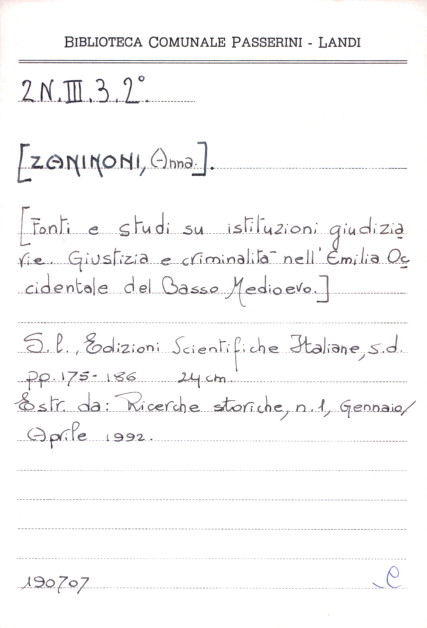 BIBLIOTECA COMUNALE PASSERINI - LANDI
2N.III.3.2°.
[ZANINONI, Anna.].
[Fonti e studi su istituzioni giudizia
rie. Giustizia e criminalità nell'Emilia Oc
cidentale del Basso Medioevo.]
S.l., Edizioni Scientifiche Italiane, s.d.
pp. 175-186 24 cm.
Estr. da: Ricerche storiche, n. 1, Gennaio/
Aprile 1992.
190707